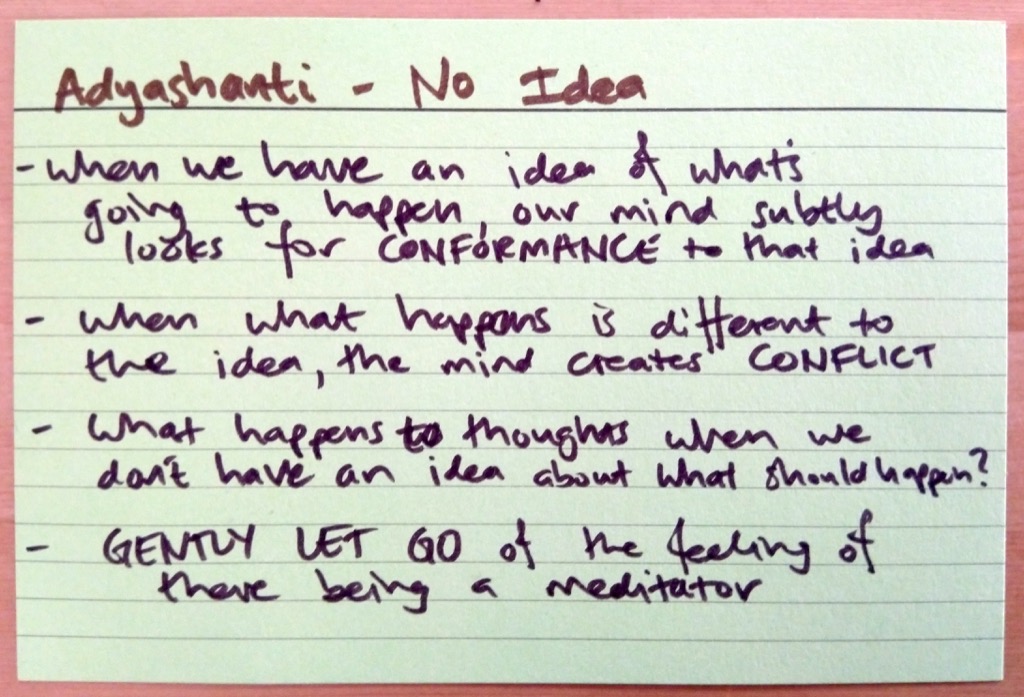 Adyashanti - No Idea
- when we have an idea of what's
going to happen, our mind subtly
looks for CONFORMANCE to that idea
- when what happens is different to
the idea, the mind creates CONFLICT
- What happens to thoughts when we
don't have an idea about what should happen?
- GENTLY LET GO of the feeling of
there being a meditator